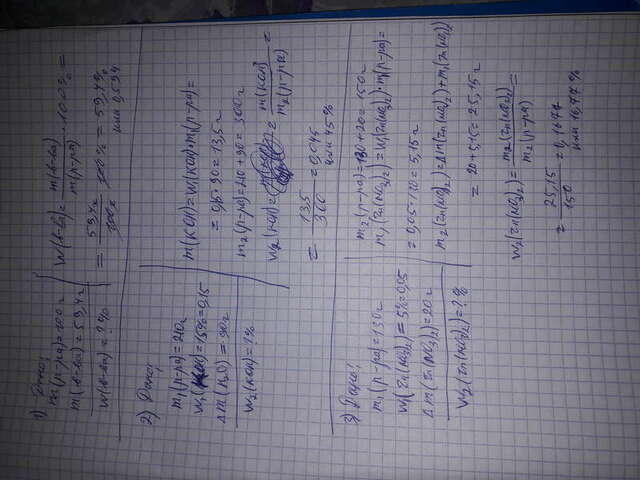 1) Дано:
m(р-ра)=100г
m(в-ва)=59,4г
w(в-ва)=?%
w(в-ва)= m(в-ва) / m(р-ра) · 100% =
= 59,4 / 100 · 100% = 59,4%
или 0,594
2) Дано:
m₁(р-ра)=210г
w₁(KOH)=15%=0,15
Δm(H₂O)=90г
w₂(KOH)=?%
m(KOH)=w(KOH)·m₁(р-ра)=
=13,5г
m₂(р-ра)=210+90=300г
w₂(KOH)= m(KOH) / m₂(р-ра) =
= 13,5 / 300 = 0,045
или 45%
3) Дано:
m₁(р-ра)=130г
w₁(Zn(NO₃)₂)=5%=0,05
Δm(Zn(NO₃)₂)=20г
w₂(Zn(NO₃)₂)=?%
m₂(р-ра)=130+20=150г
m₁(Zn(NO₃)₂)=w₁(Zn(NO₃)₂)·m₁(р-ра)=
=0,05·130=5,15г
m₂(Zn(NO₃)₂)=Δm(Zn(NO₃)₂)+m₁(Zn(NO₃)₂)
=20+5,15=25,15г
w₂(Zn(NO₃)₂)= m₂(Zn(NO₃)₂) / m₂(р-ра) =
= 25,15 / 150 = 0,1677
или 16,77%